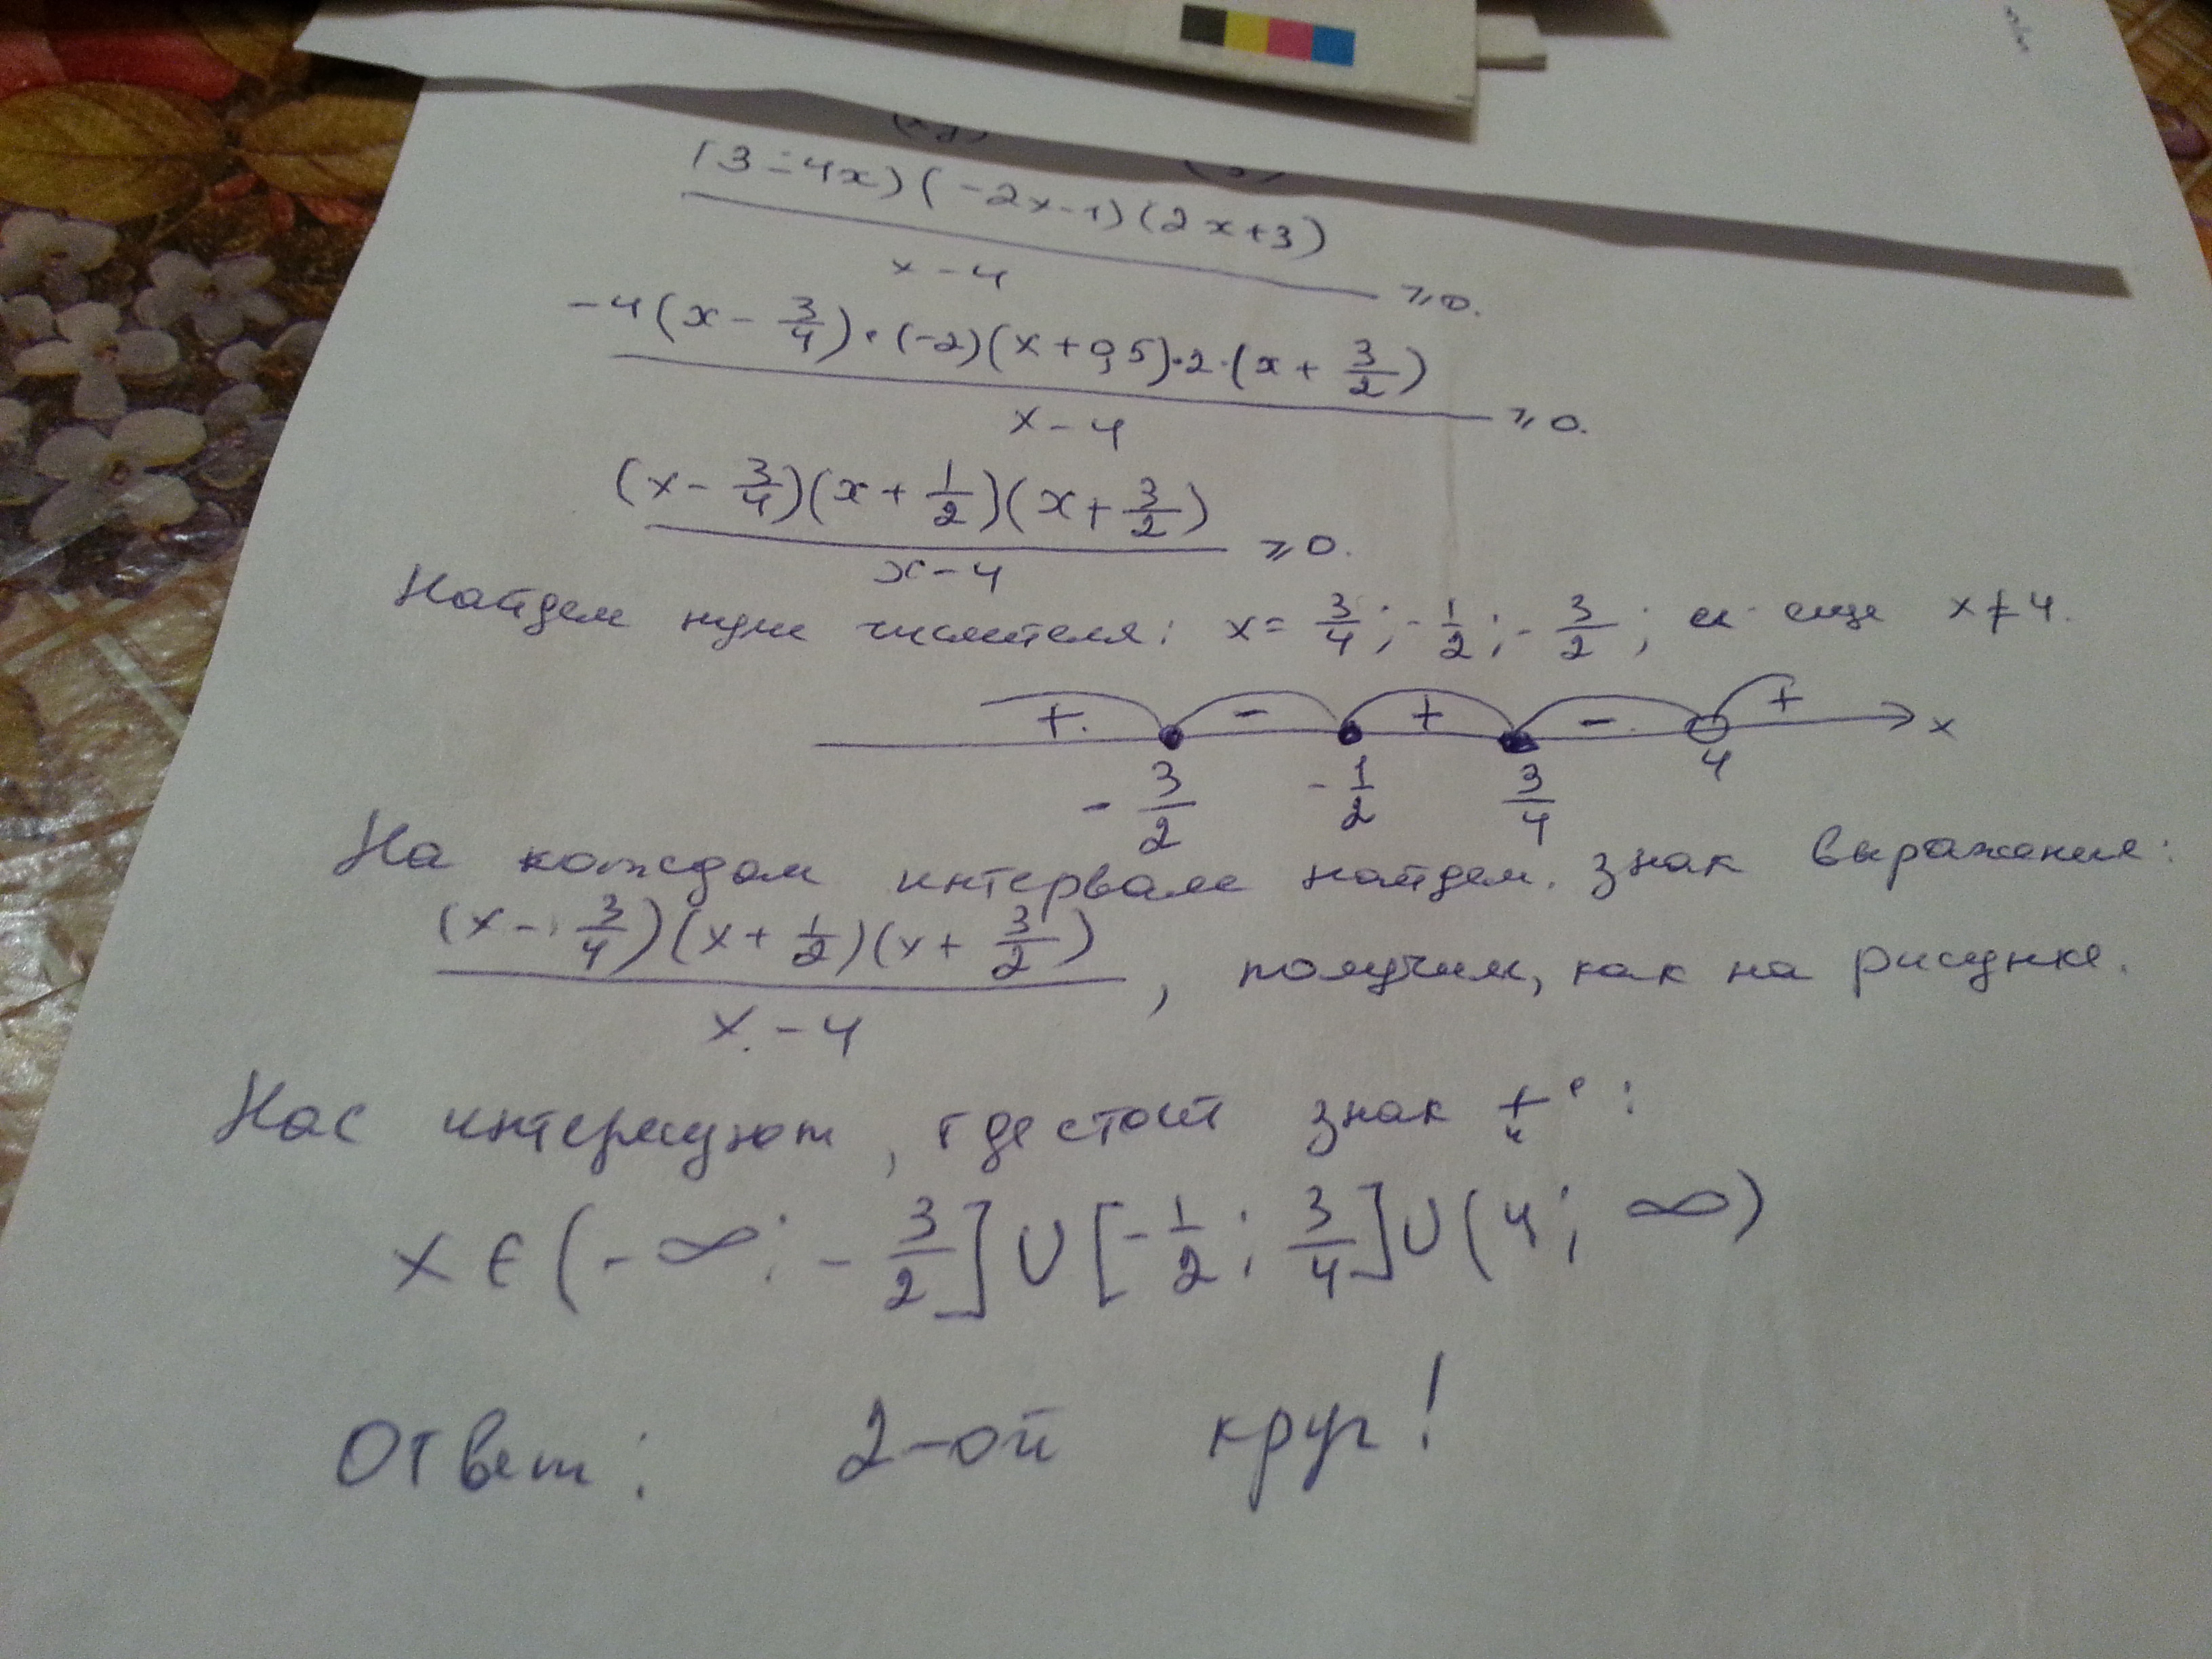 (3-4x)(-2x-1)(2x+3)
x-4
≥0.
-4(x-3/4)·(-2)(x+0,5)·2·(x+3/2)
x-4
≥0.
(x-3/4)(x+1/2)(x+3/2)
x-4
≥0.
Найдем нули числителя: x=3/4;-1/2;-3/2; и еще x≠4.
+. - + -. + x
-3/2 -1/2 3/4 4
На каждом интервале найдем. знак выражения:
(x-3/4)(x+1/2)(x+3/2)
x-4
, получим, как на рисунке.
Нас интересуют, где стоит знак „+“:
x∈(-∞;-3/2]∪[-1/2;3/4]∪(4;∞)
Ответ: 2-ой круг!